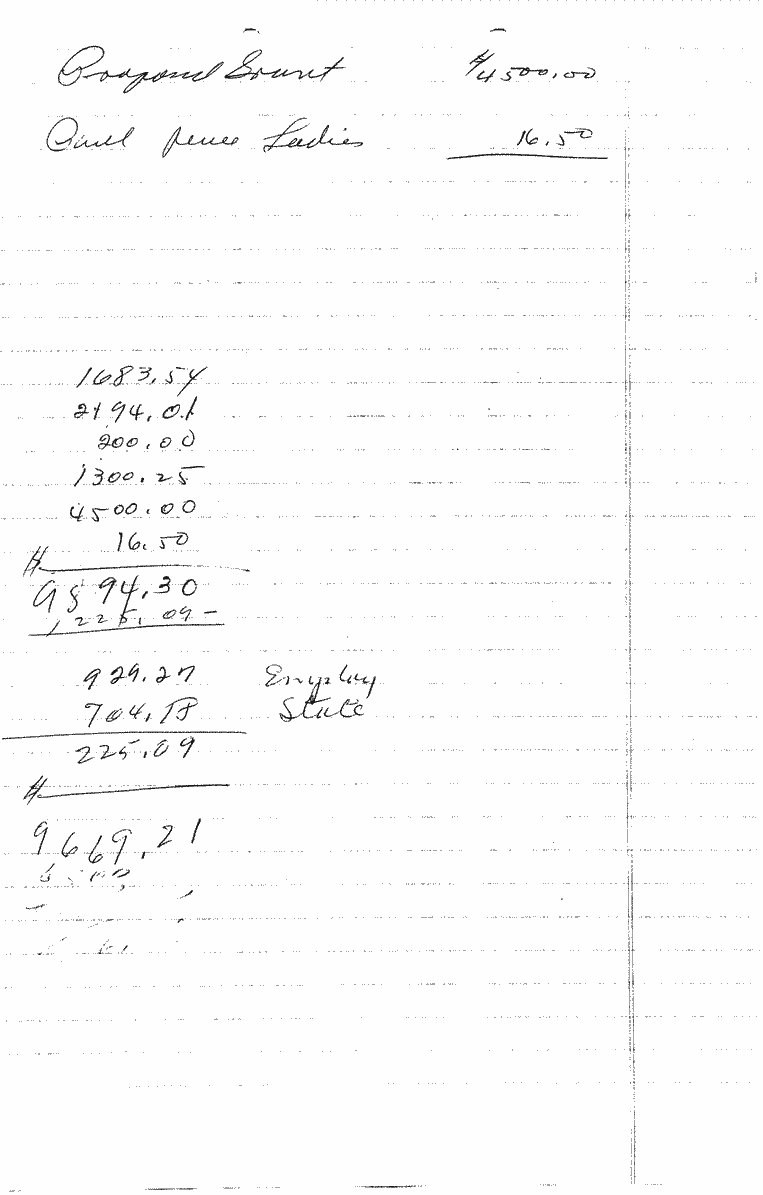 Proposed Grant $4500.00
Ladies 16.50
1683.54
2194.01
200.00
1300.25
4500.00
16.50
$
9894.30
225.09 –
929.27 Employ
704.18 State
225.09
$
9669.21